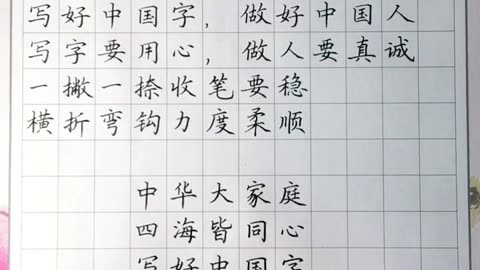 写好中国字，做好中国人
写字要用心，做人要真诚
一撇一捺收笔要稳
横折弯钩力度柔顺
中华大家庭
四海皆同心
写好中国字